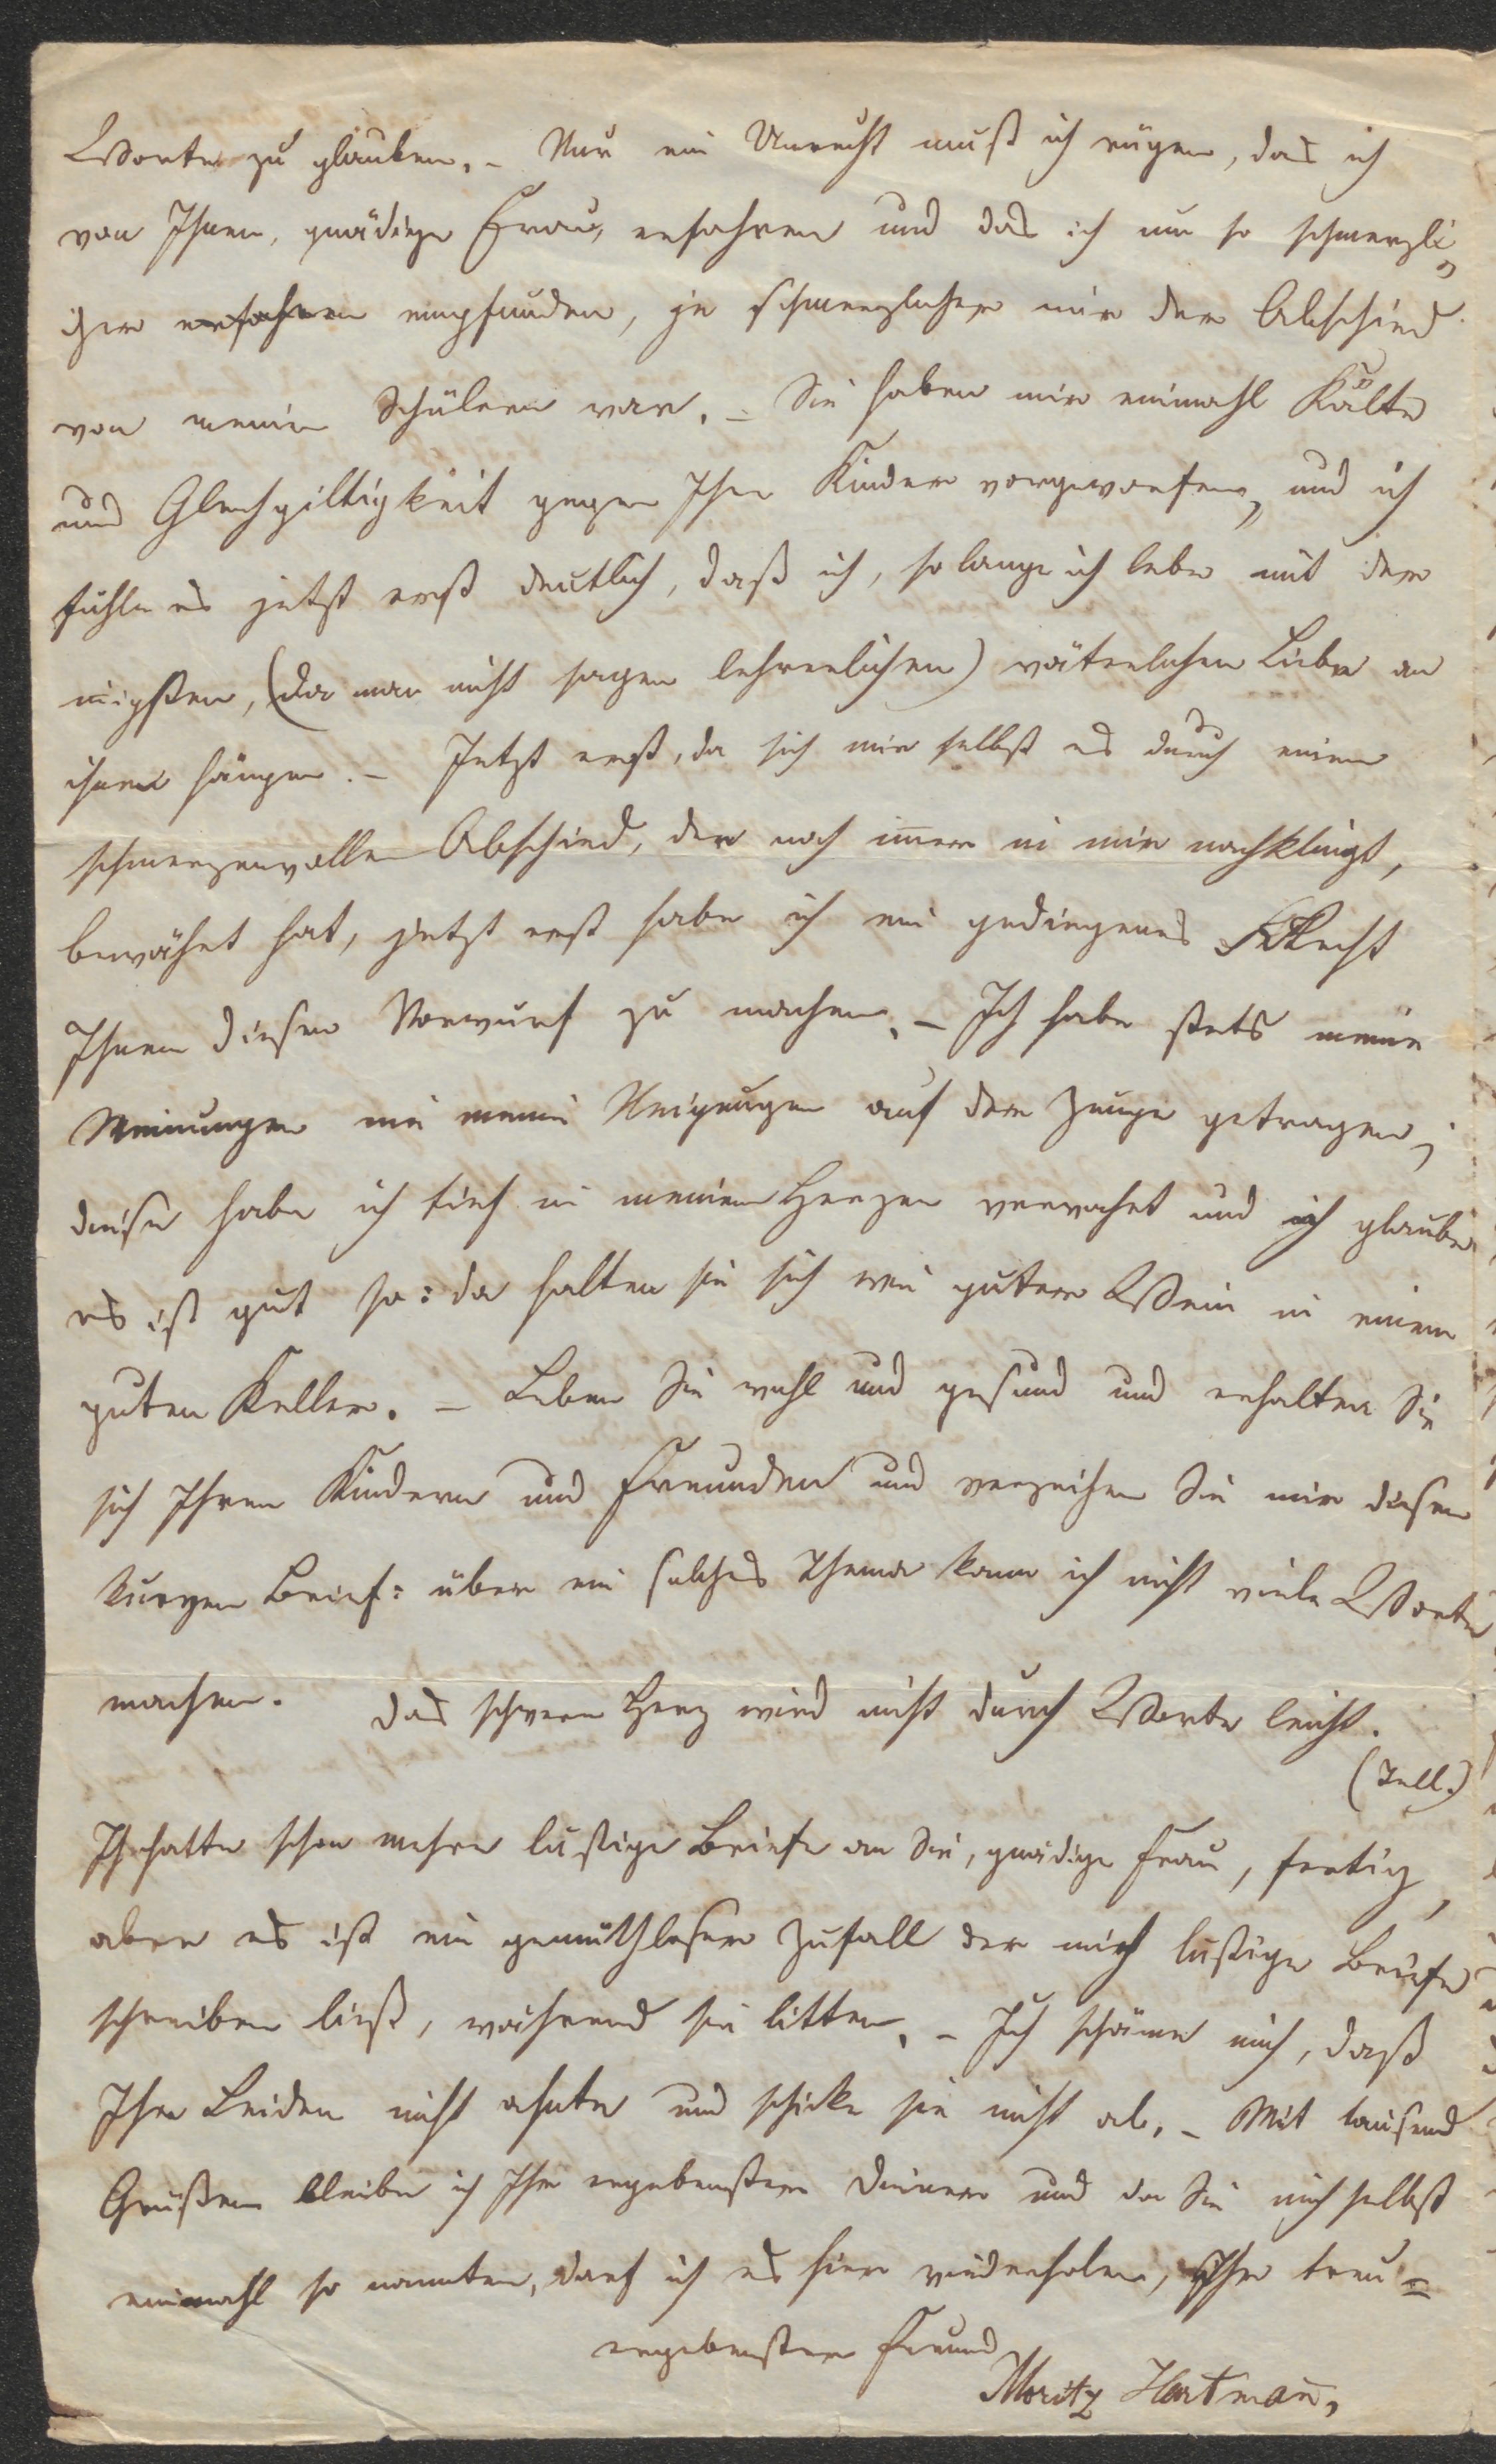 Worte zu glauben. – Nur ein Unrecht muß ich rügen, das ich
von Ihnen, gnädige Frau, erfahren und das ich um so schmerzli„
cher erfahren empfunden, je schmerzlicher mir der Abschied
von meinen Schülern war. – Sie haben mir einmahl Kälte
und Gleichgiltigkeit gegen Ihre Kinder vorgeworfen, und ich
fühle es jetzt erst deutlich, daß ich, so lange ich lebe mit der
innigsten, (da man nicht sagen lehrerlichen) väterlichen Liebe an
ihnen hänge. – Jetzt erst, da sich mir selbst es durch einen
schmerzenvollen Abschied, der noch im̄er in mir nachklingt,
bewährt hat, jetzt erst habe ich ein gediegenes Recht
Ihnen diesen Vorwurf zu machen. – Ich habe stets meine
Meinungen nie meine Neigungen auf der Zunge getragen;
diese habe ich tief in meinem Herzen verwahrt und ich glaube
es ist gut so: da halten sie sich wie guter Wein in einem
guten Keller. – Leben Sie wohl und gesund und erhalten Sie
sich Ihren Kindern und Freunden und verzeihen Sie mir diesen
kurzen Brief: über ein solches Thema kann ich nicht viele Worte
machen. Das schwere Herz wird nicht durch Worte leicht.
(Tell.)
Ich hatte schon mehre lustige Briefe an Sie, gnädige Frau, fertig,
aber es ist ein gemüthloser Zufall der mich lustige Briefe
schreiben ließ, während sie litten. – Ich schäme mich, daß
Ihre Leiden nicht ahnte und schicke sie nicht ab. – Mit tausend
Grüßen bleibe ich Ihr ergebenster Diener und da Sie mich selbst
einmahl so nannten, darf ich es hier wiederholen, Ihr treu=
ergebenster Freund
Moritz Hartmañ,